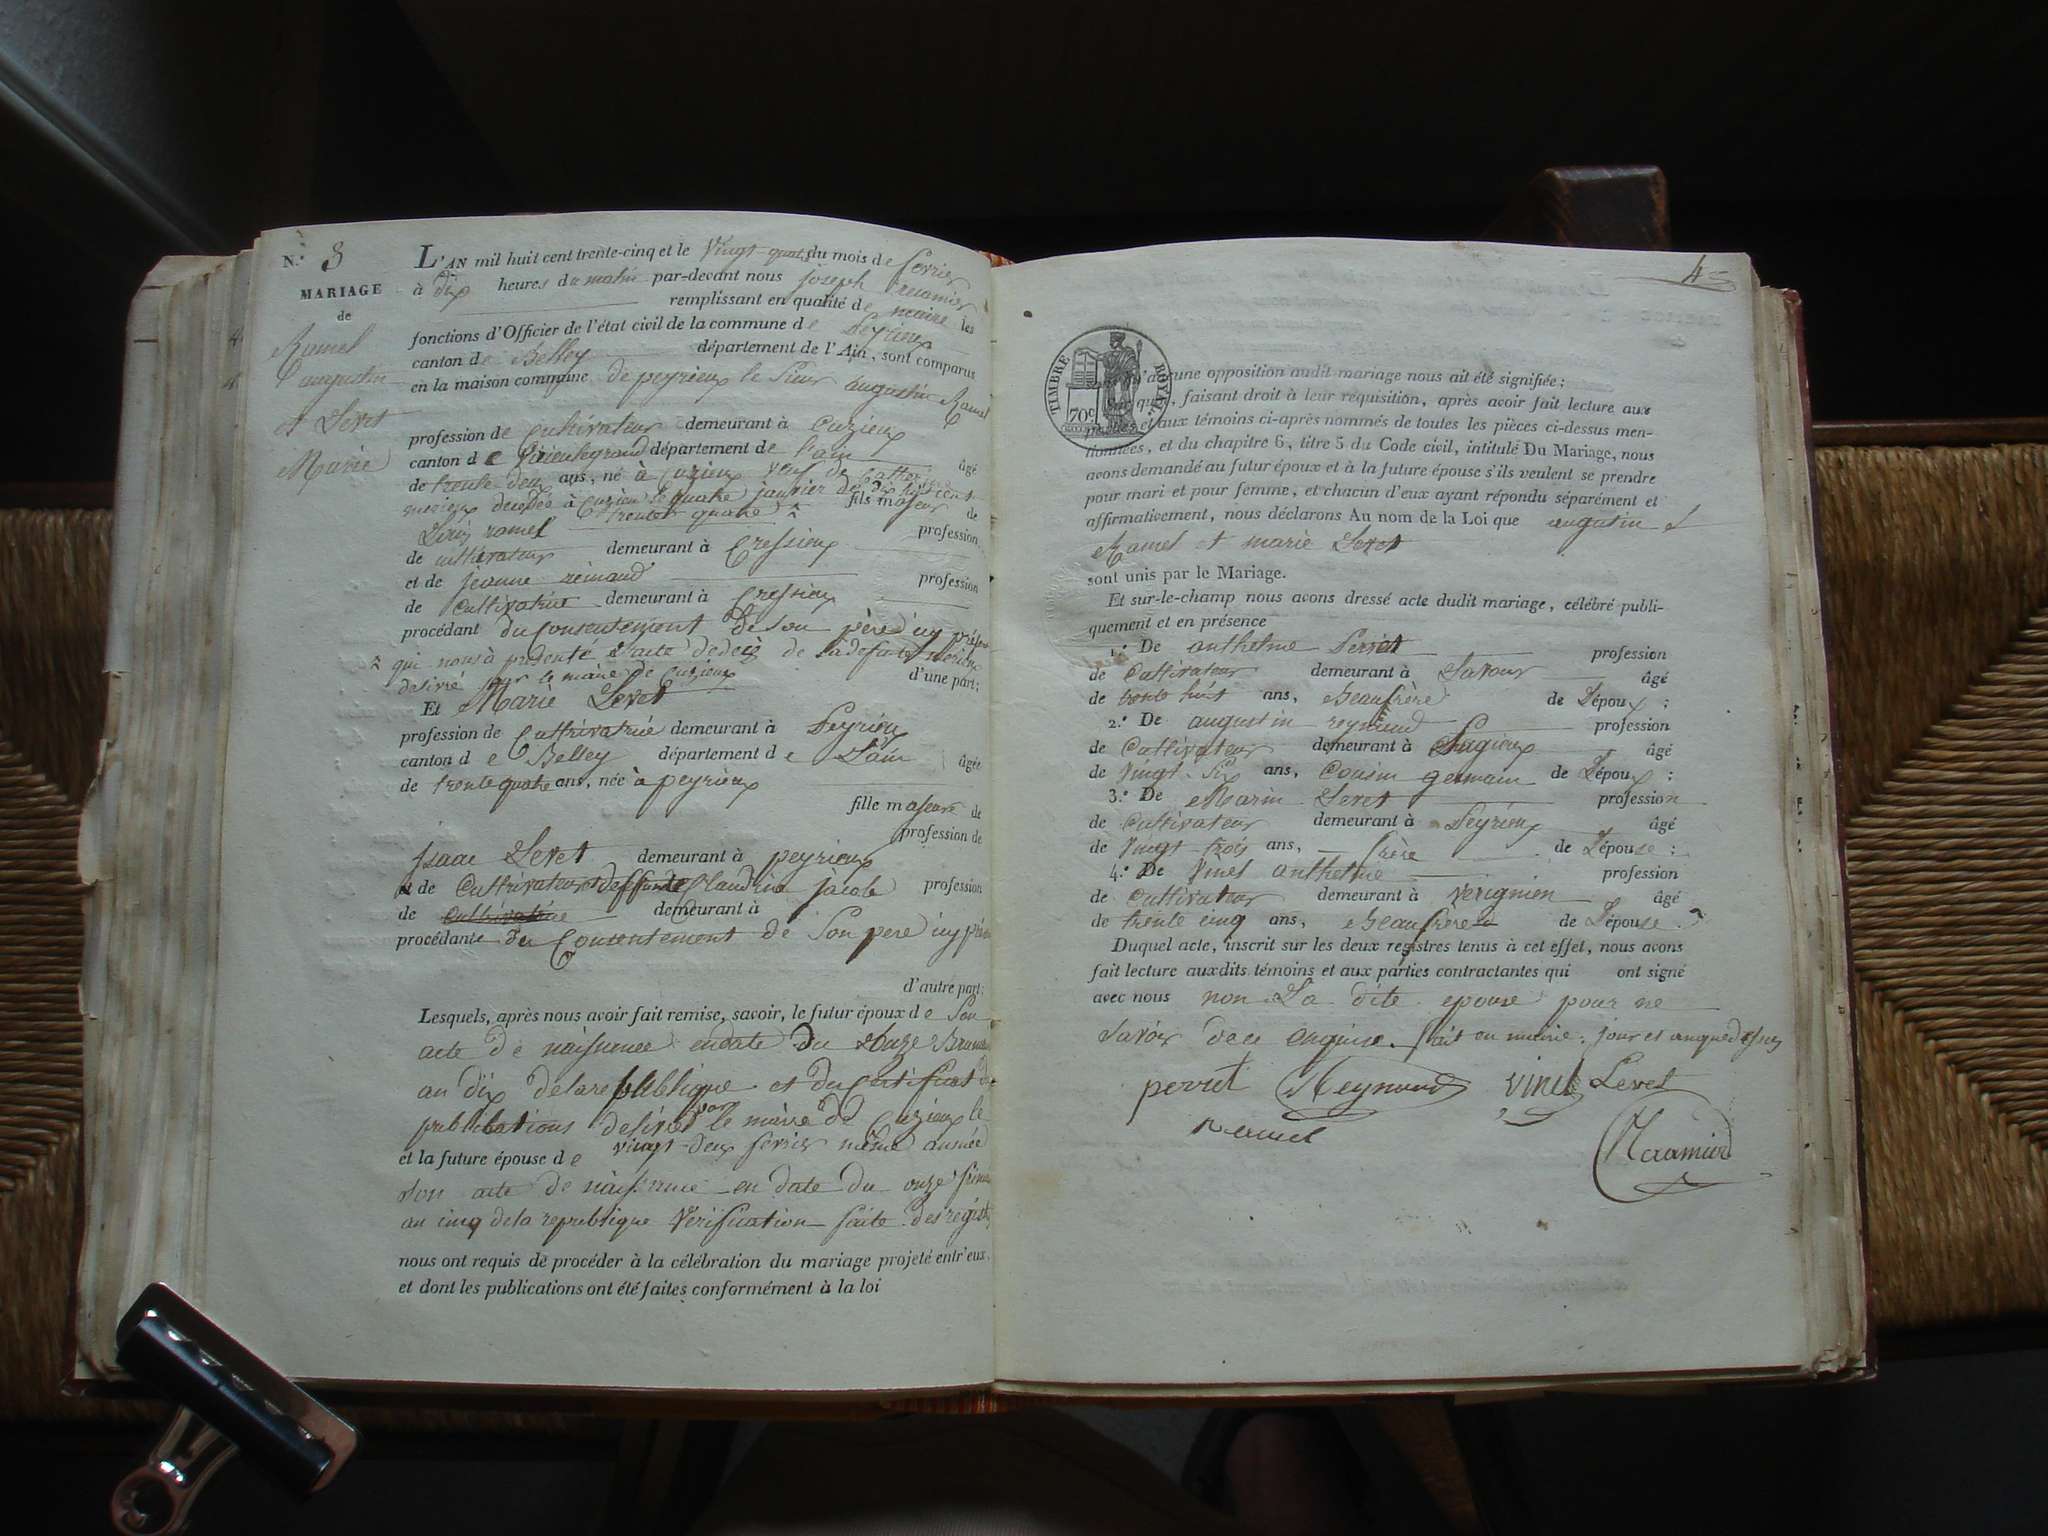 N.° 3
MARIAGE
de
Ramel
augustin
et Levet
Marie
L'AN mil huit cent trente-cinq et le Vingt-quatre du mois de fevrier
à dix heures du matin par-devant nous joseph recamier
remplissant en qualité de maire les
fonctions d'Officier de l'état civil de la commune de Peyrieux
canton de Belley département de l'Ain, sont comparus
en la maison commune de peyrieux le sieur augustin Ramel
profession de Cultivateur demeurant à Cuzieux
canton de Virieulegrand département de l'ain âgé
de trente deux ans, né à Cuzieux veuf de
decedée à Cuzieu le quatre janvier dix huit cent
trente quatre fils majeur de
ramel profession
de cultivateur demeurant à Cressieux
et de jeanne reinaud profession
de Cultivatrice demeurant à Cressieux
procédant du Consentement de son père icy présent
qui nous à présenté l'acte de décé de sa defunte
delivré par le maire de Cuzieux d'une part;
Et Marie Levet
profession de Cultivatrice demeurant à Peyrieux
canton de Belley département de L'ain âgée
de trente quatre ans, née à peyrieux
fille majeure de
profession de
jsaac Levet demeurant à peyrieux
et de Cultivateur et deffunte Claudine jacob profession
de cultivatrice demeurant à
procédante du Consentement de Son pere icy présent
d'autre part;
Lesquels, après nous avoir fait remise, savoir, le futur époux de Son
acte de naissence en date du Onze Brumaire
an dix de la republique et du Certificat de
publications delivré par le maire de Cuzieux le
et la future épouse de vingt-deux fevrier même année
son acte de naissence en date du onze frimaire
an cinq de la republique Verification faite des registres
nous ont requis de procéder à la célébration du mariage projeté entr'eux,
et dont les publications ont été faites conformément à la loi
4
TIMBRE ROYAL.
70c
aucune opposition audit mariage nous ait été signifiée;
faisant droit à leur réquisition, après avoir fait lecture aux
parties et aux témoins ci-après nommés de toutes les pièces ci-dessus men-
tionnées, et du chapitre 6, titre 5 du Code civil, intitulé Du Mariage, nous
avons demandé au futur époux et à la future épouse s'ils veulent se prendre
pour mari et pour femme, et chacun d'eux ayant répondu séparément et
affirmativement, nous déclarons Au nom de la Loi que augutin
Ramel et marie Levet
sont unis par le Mariage.
Et sur-le-champ nous avons dressé acte dudit mariage, célébré publi-
quement et en présence
1.° De anthelme Perret profession
de Cultivateur demeurant à Lavour âgé
de trente huit ans, Beaufrère de L'époux;
2.° De augustin reynaud profession
de Cultivateur demeurant à Pugieux âgé
de Vingt-Six ans, Cousin germain de L'époux;
3.° De Marin Levet profession
de Cultivateur demeurant à Peyrieux âgé
de Vingt-trois ans, frère de L'épouse;
4.° De Vinet anthelme profession
de Cultivateur demeurant à Verignien âgé
de trente cinq ans, Beaufrère de L'épouse.
Duquel acte, inscrit sur les deux registres tenus à cet effet, nous avons
fait lecture auxdits témoins et aux parties contractantes qui ont signé
avec nous non La dite epouse pour ne
Savoir de ce enquise. fait en mairie jour et an que dessus
perret Reynaud vinet Levet
ramel
Recamier